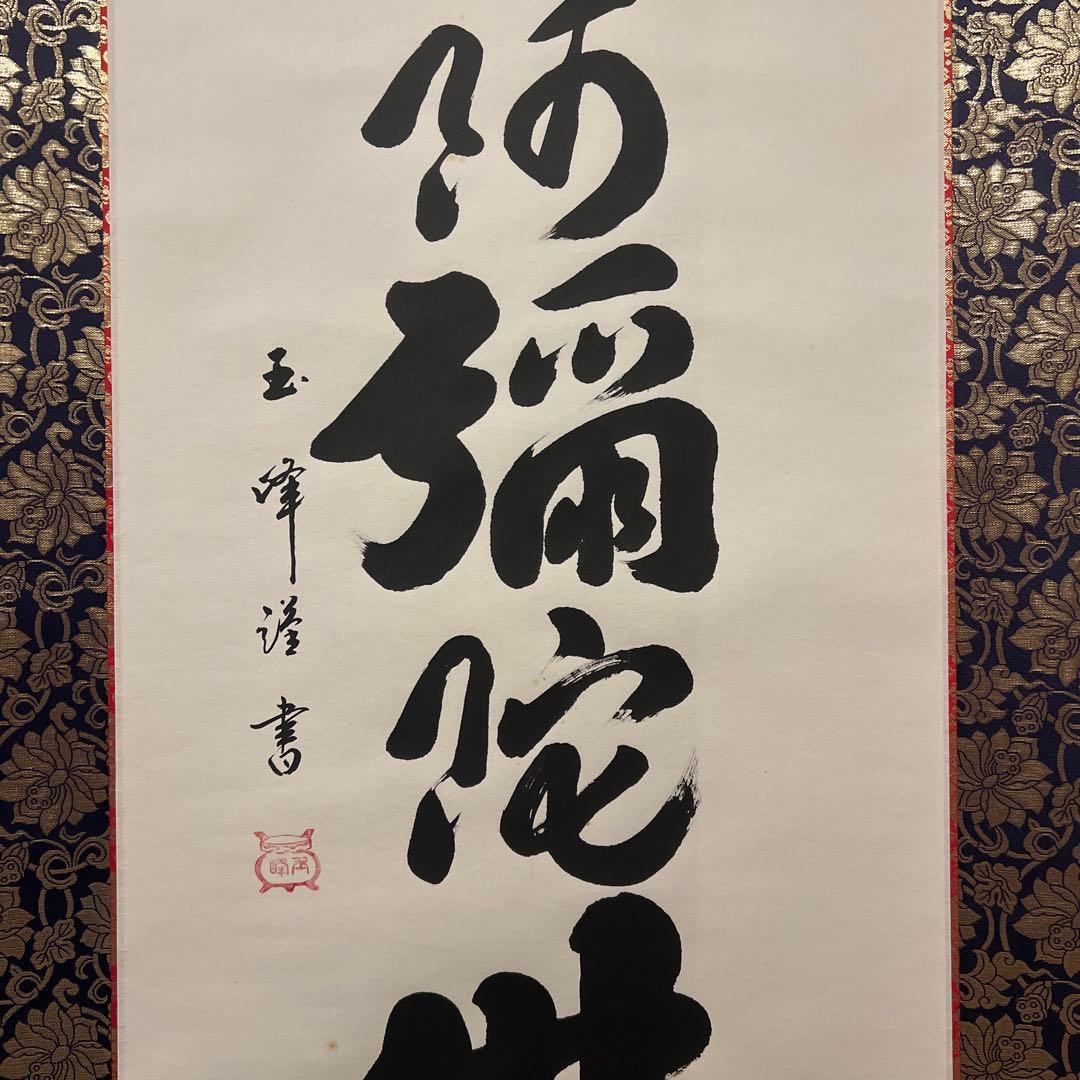 阿彌陀
玉峰謹書
玉峰